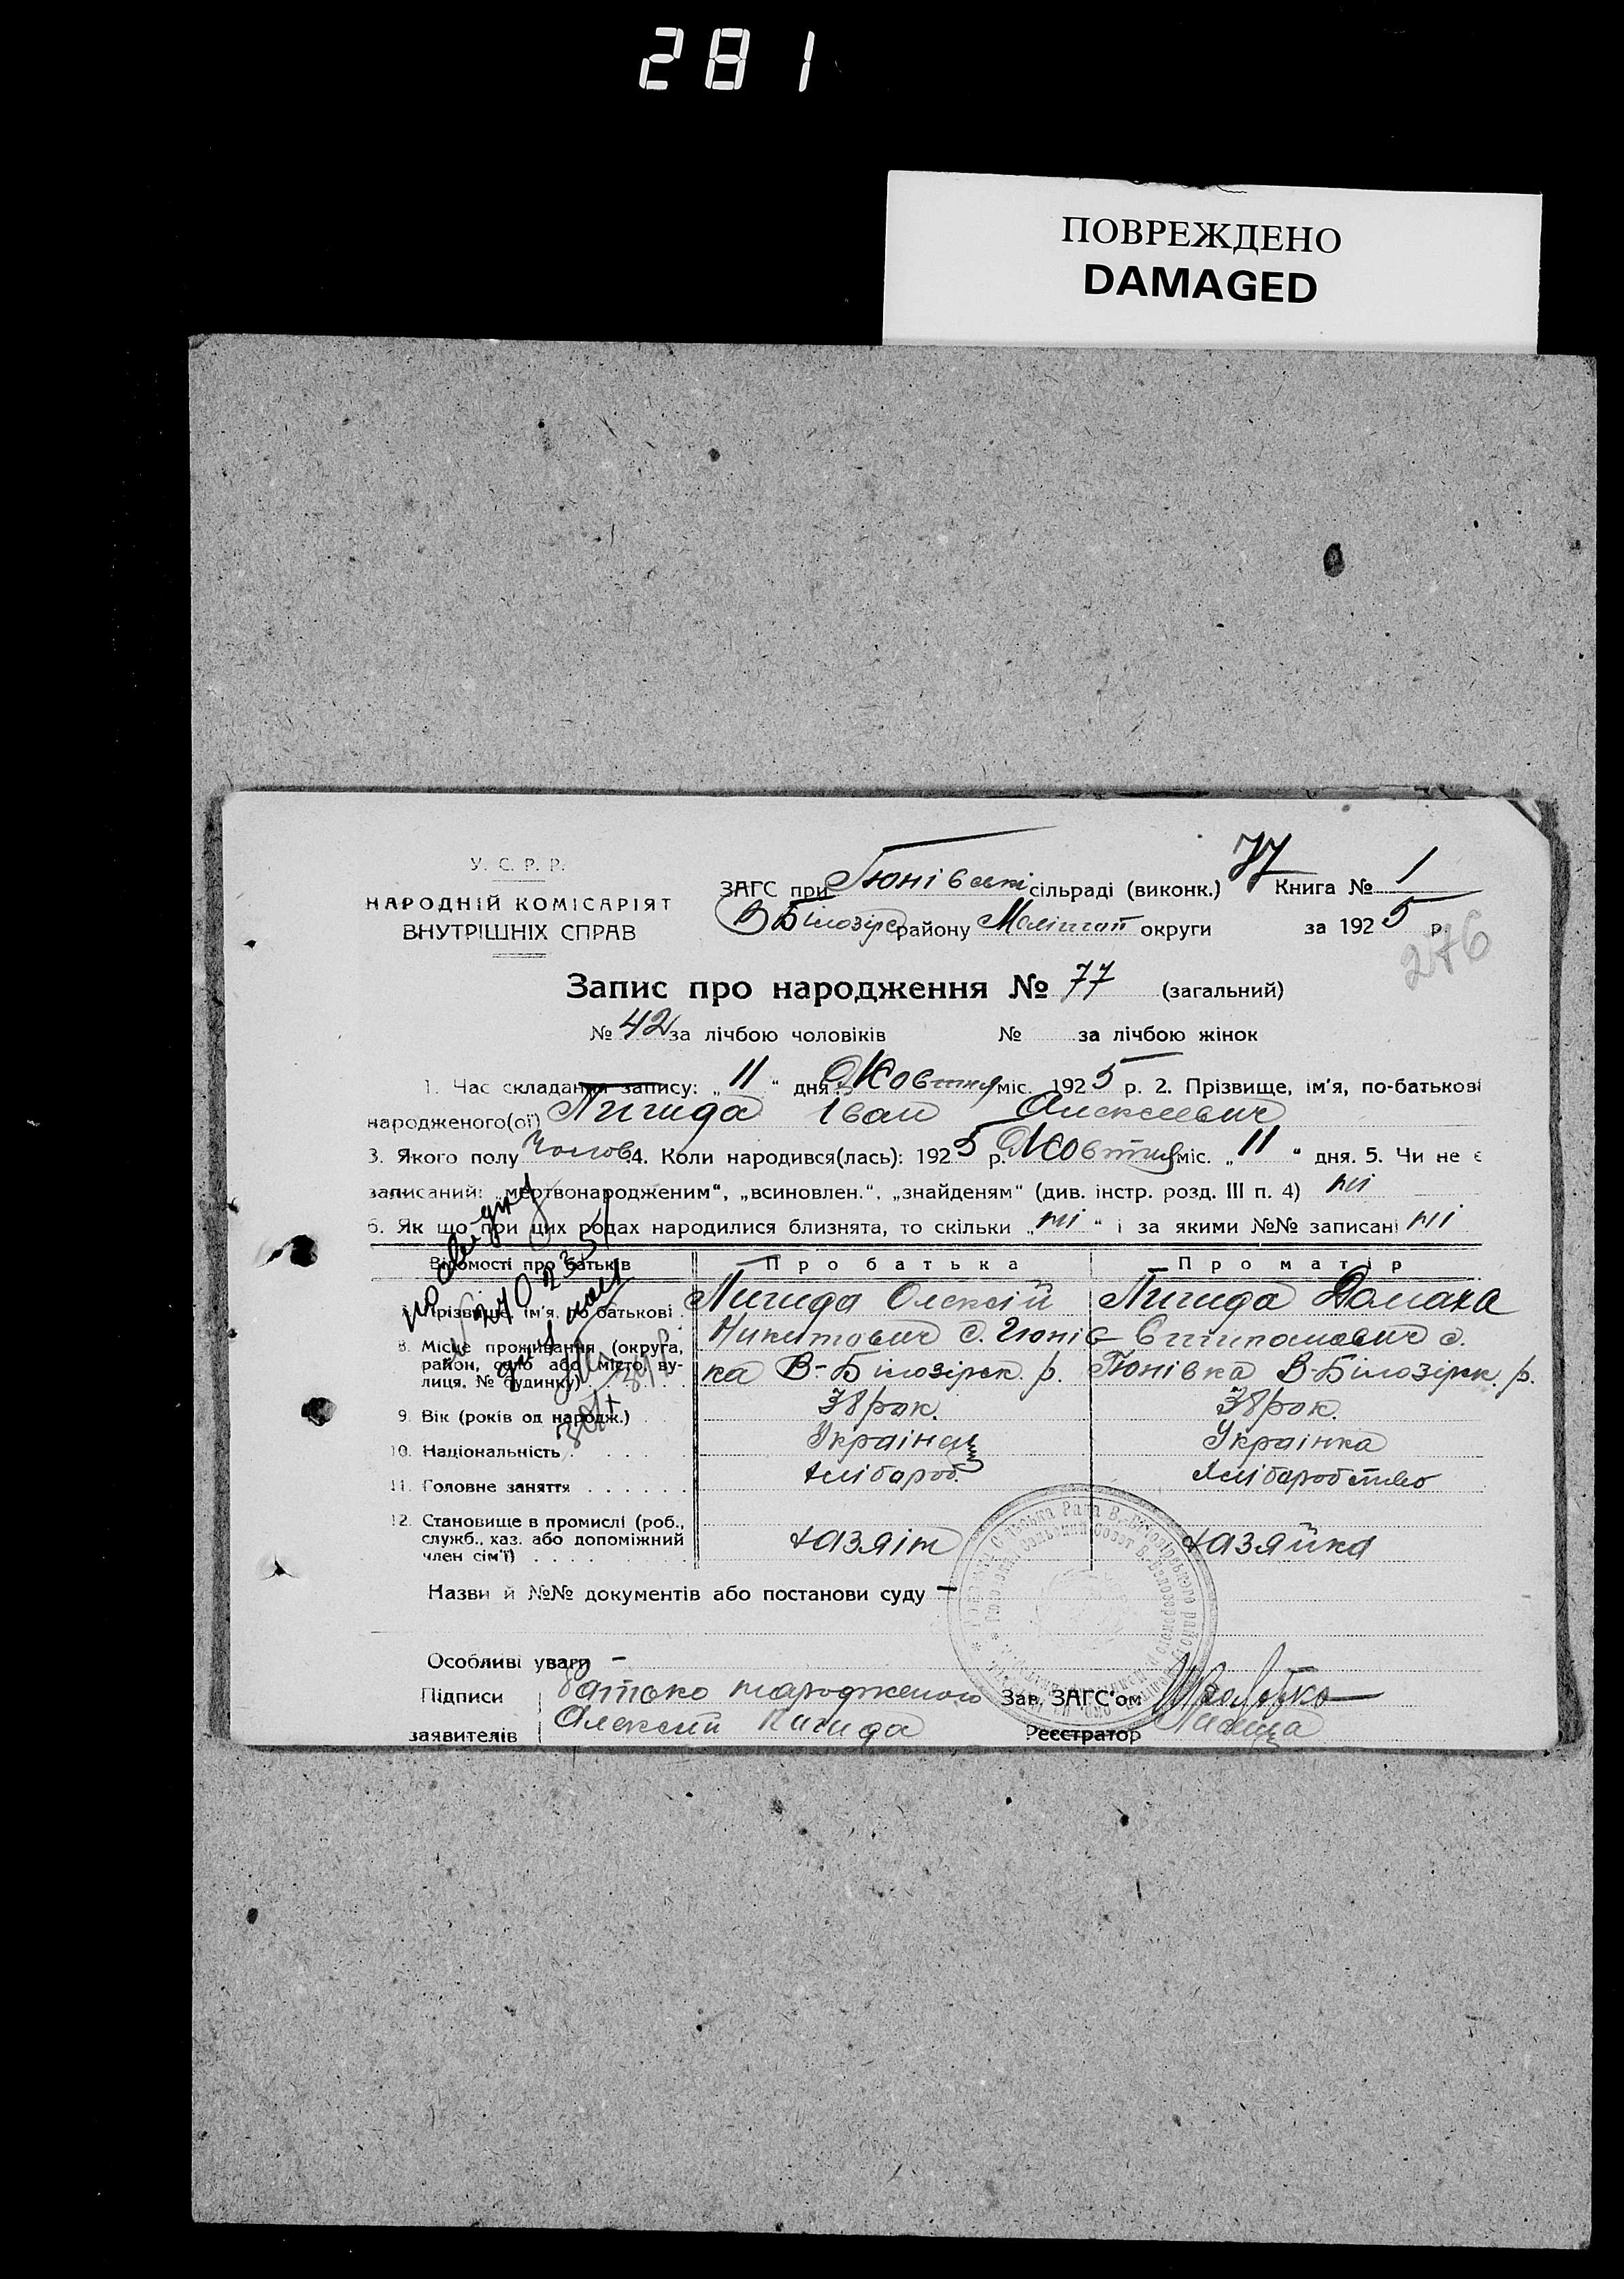 281
ПОВРЕЖДЕНО
DAMAGED
У. С. Р. Р.
НАРОДНІЙ КОМІСАРІЯТ
ВНУТРІШНІХ СПРАВ
ЗАГС при Тюнівські сільраді (виконк.) 77 Книга № 1
В Білозірс району Меліт округи за 1925 р.
276
Запис про народження № 77 (загальний)
№ 42 за лічбою чоловіків № за лічбою жінок
1. Час складання запису: „ 11 “ дня Жовтня міс. 1925 р. 2. Прізвище, ім'я, по-батькові
народженого(ої) Пигида Іван Алексеевич
3. Якого полу Чолов. 4. Коли народився(лась): 1925 р. Жовтня міс. „ 11 “ дня. 5. Чи не є
записаний: „мертвонародженим“, „всиновлен.“, „знайденям“ (див. інстр. розд. III п. 4) ні
6. Як що при цих родах народилися близнята, то скільки „ ні “ і за якими №№ записані ні
Відомості про батьків Про батька Про матір
7. Прізвище, ім'я, по батькові Пигида Олексій Пигида Домаха
8. Місце проживання (округа, Никитович с. Тюнів с.
район, село або місто, ву- ка В-Білозірск. р. Тюнівка В-Білозірск. р.
лиця, № будинку)
9. Вік (років од народж.) 38 рок. 38 рок.
10. Національність Українец Українка
11. Головне заняття Хлібороб. Хліборобство
12. Становище в промислі (роб.,
служб., хаз. або допоміжний хазяін хазяйка
член сім'ї)
Назви й №№ документів або постанови суду —
Особливі уваги —
Підписи Батько народженого Зав. ЗАГС'ом
заявителів Алексей Пигида Реєстратор